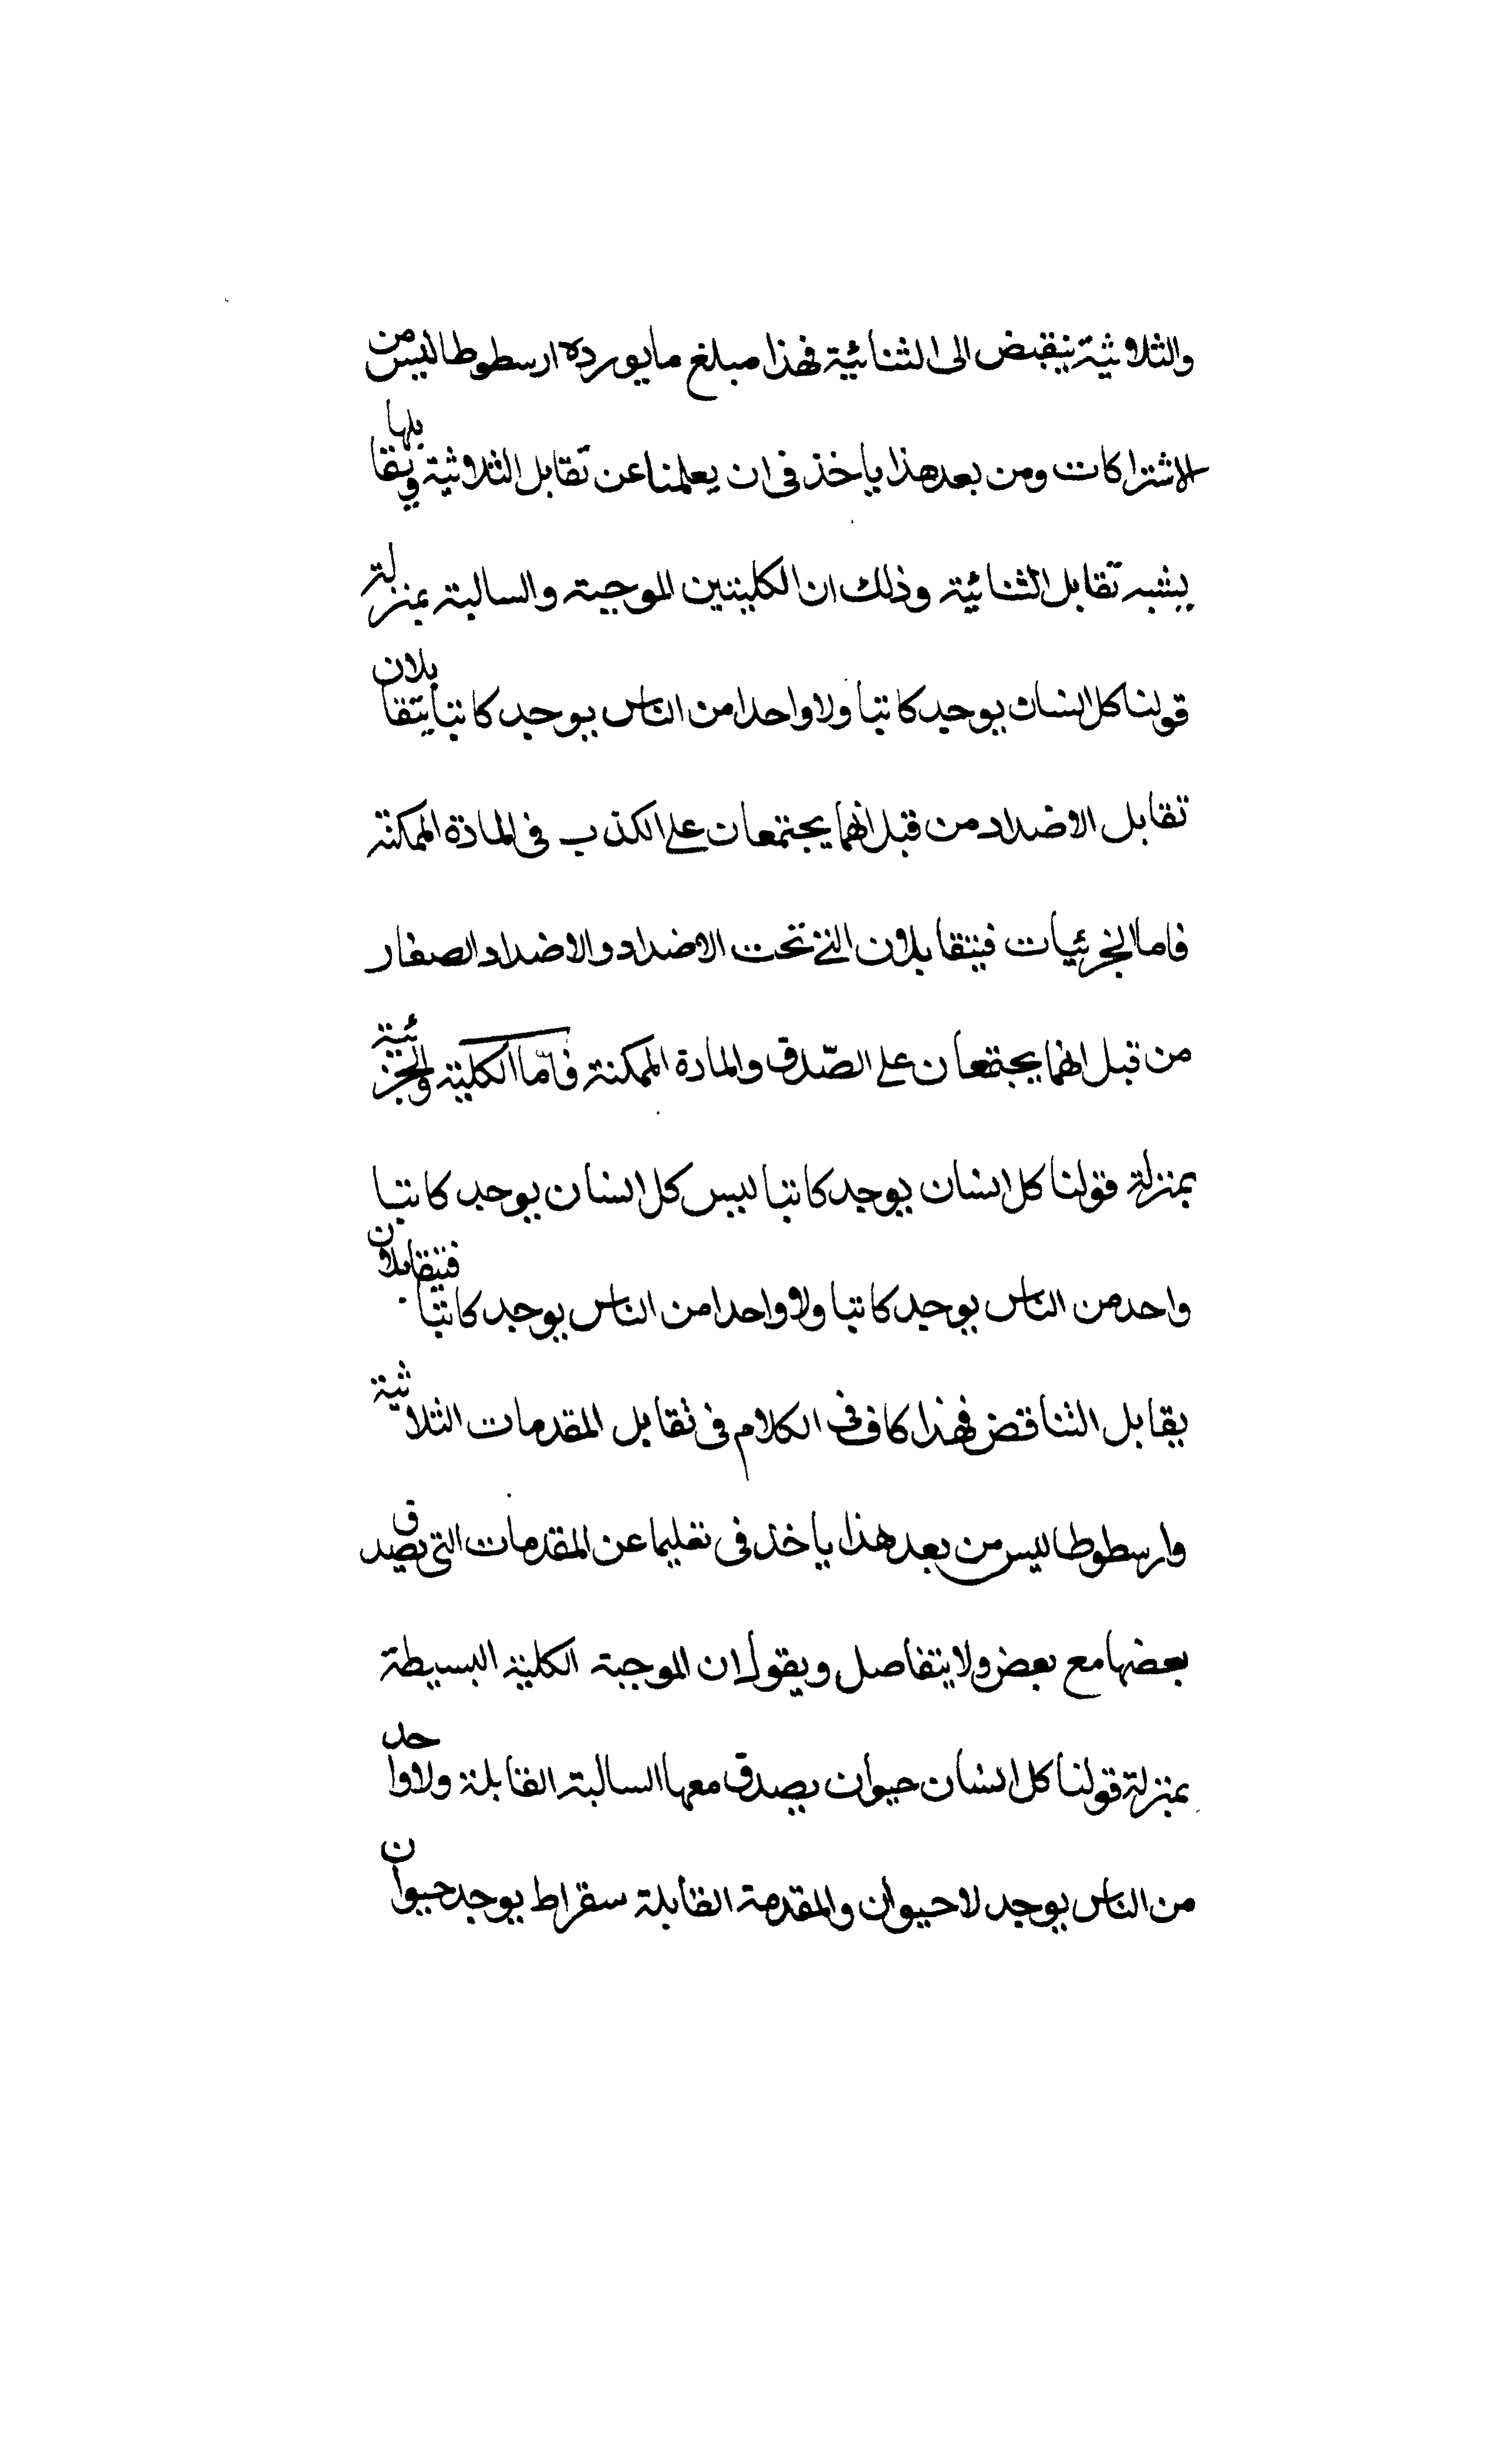 والثلاثية ينقبض الى الثنائية فهذا مبلغ ما يورده ارسطوطاليس من
الاشتراكات ومن بعد هذا ياخذ فى ان يعلمنا عن تقابل الثلاثية وتقابلها
يشبه تقابل الثنائية وذلك ان الكليتين الموجبة والسالبة بمنزلة
قولنا كل انسان يوجد كاتبا ولا واحدا من الناس يوجد كاتبا يتقابلان
تقابل الاضداد من قبل انهما يجتمعان على الكذب فى المادة الممكنة
فاما الجزئيات فيتقابلان التى تحت الاضداد والاضداد الصغار
من قبل انهما يجتمعان على الصّدق والمادة الممكنة فامّا الكلية والجزئية
بمنزلة قولنا كل انسان يوجد كاتبا ليس كل انسان يوجد كاتبا
واحد من الناس يوجد كاتبا ولا واحدا من الناس يوجد كاتبا فيتقابلان
يقابل التناقض فهذا كاف فى الكلام فى تقابل المقدمات الثلاثية
وارسطوطاليس من بعد هذا ياخذ فى تعليما عن المقدمات التى يصدق
بعضها مع بعض ولا يتفاصل ويقول ان الموجبة الكلية البسيطة
بمنزلة قولنا كل انسان حيوان يصدق معها السالبة القابلة ولا واحد
من الناس يوجد لا حيوان والمقدمة القابلة سقراط يوجد حيوان